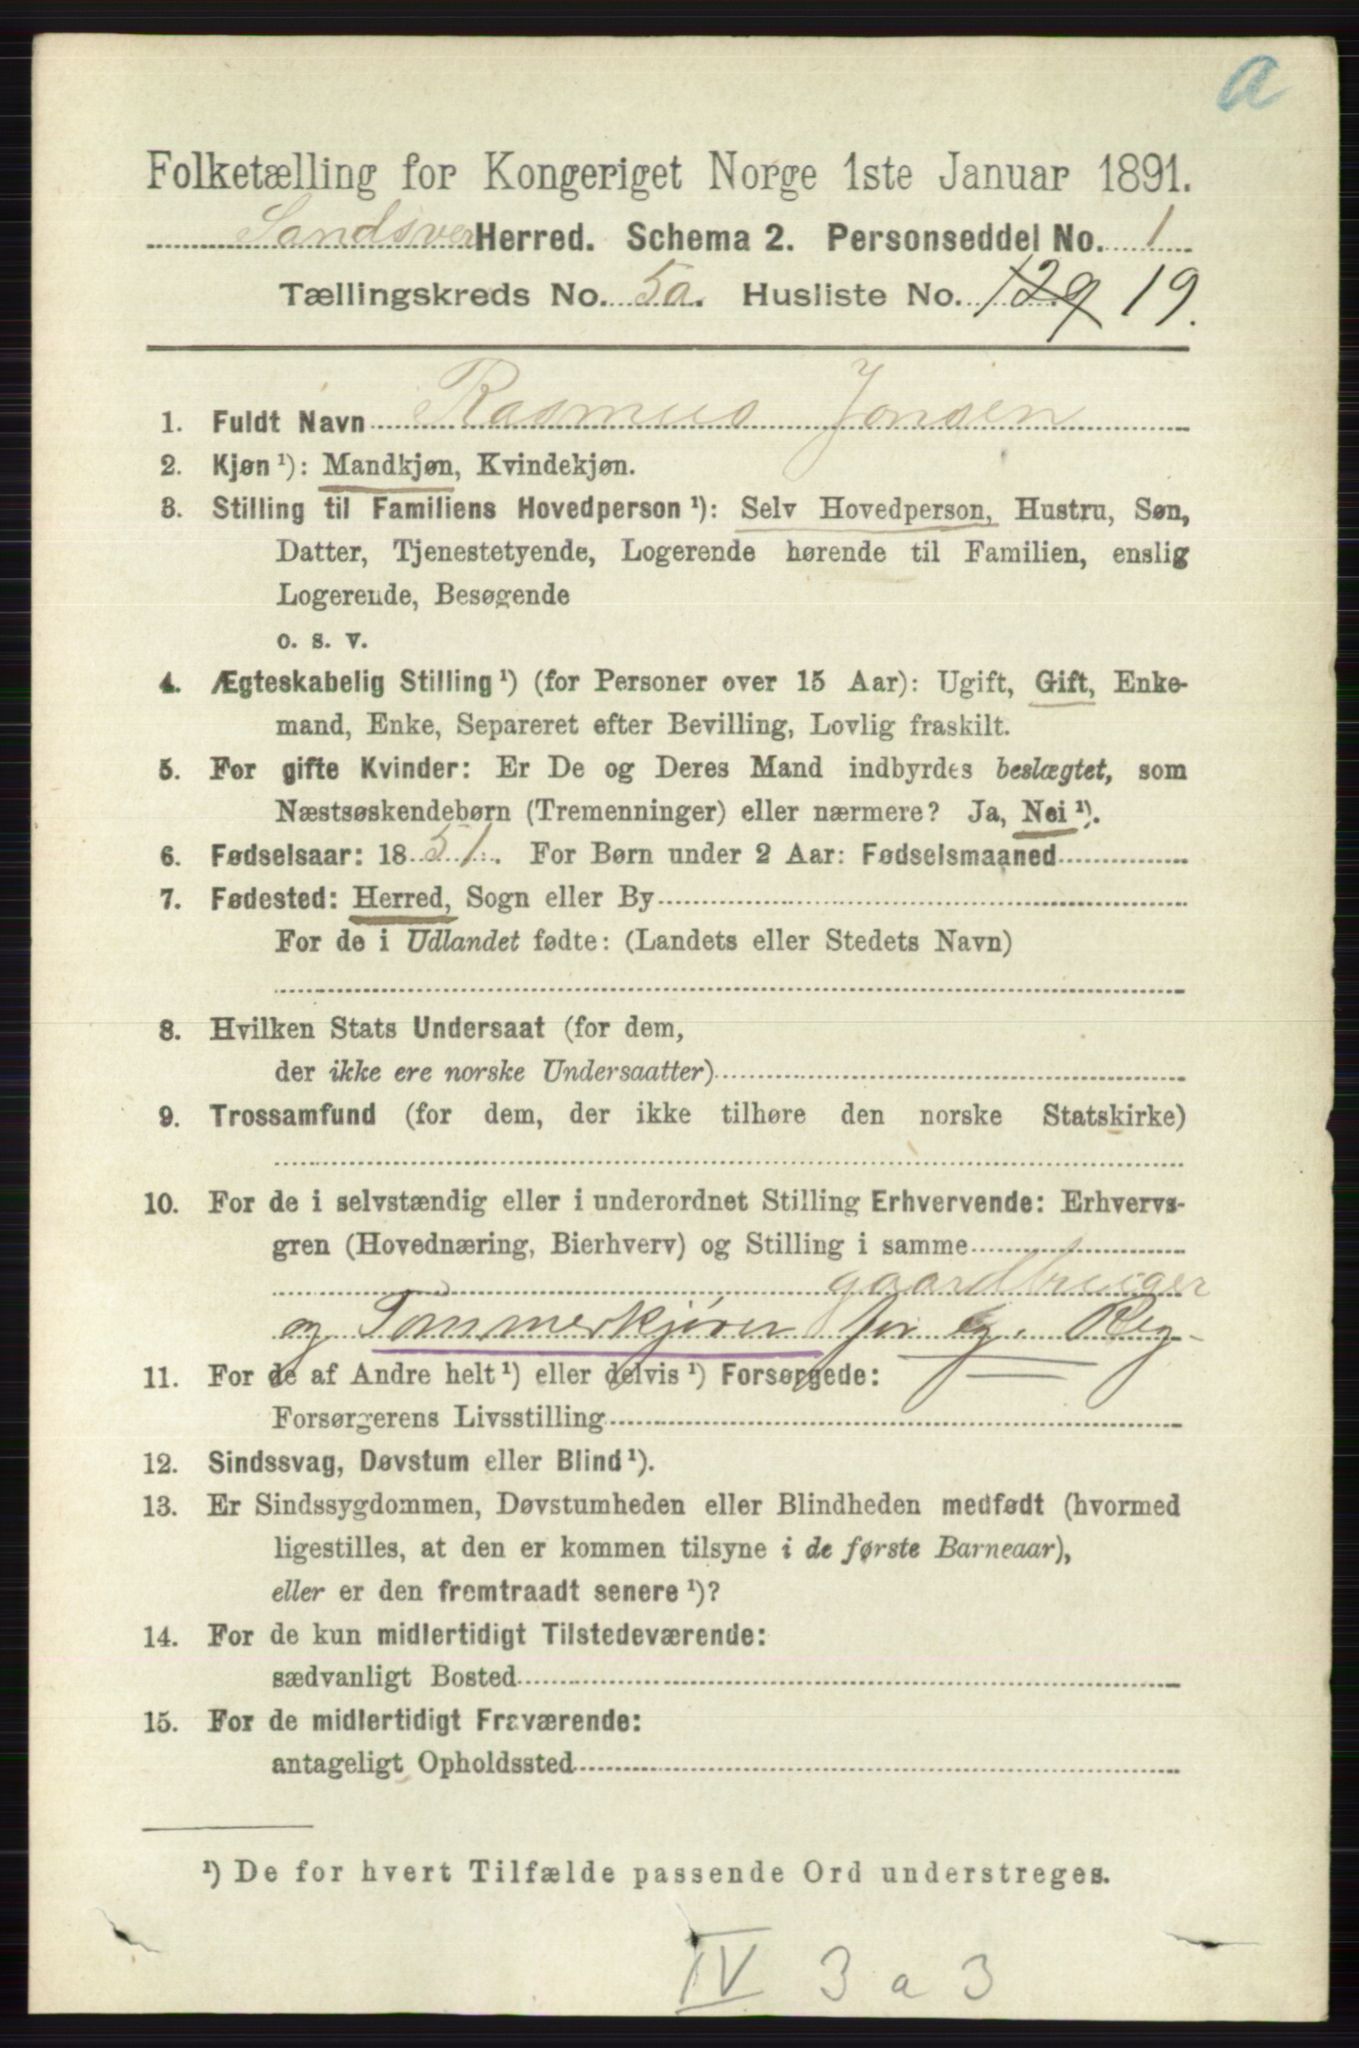 a
Folketælling for Kongeriget Norge 1ste Januar 1891.
Sandsver Herred. Schema 2. Personseddel No. 1
Tællingskreds No. 5a. Husliste No. 129 19.
1. Fuldt Navn Rasmus Jonsen
2. Kjøn ¹): Mandkjøn, Kvindekjøn.
3. Stilling til Familiens Hovedperson ¹): Selv Hovedperson, Hustru, Søn,
Datter, Tjenestetyende, Logerende hørende til Familien, enslig
Logerende, Besøgende
o. s. v.
4. Ægteskabelig Stilling ¹) (for Personer over 15 Aar): Ugift, Gift, Enke-
mand, Enke, Separeret efter Bevilling, Lovlig fraskilt.
5. For gifte Kvinder: Er De og Deres Mand indbyrdes beslægtet, som
Næstsøskendebørn (Tremenninger) eller nærmere? Ja, Nei ¹).
6. Fødselsaar: 1851. For Børn under 2 Aar: Fødselsmaaned
7. Fødested: Herred, Sogn eller By
For de i Udlandet fødte: (Landets eller Stedets Navn)
8. Hvilken Stats Undersaat (for dem,
der ikke ere norske Undersaatter)
9. Trossamfund (for dem, der ikke tilhøre den norske Statskirke)
10. For de i selvstændig eller i underordnet Stilling Erhvervende: Erhvervs-
gren (Hovednæring, Bierhverv) og Stilling i samme
gaardbruger
og Tømmerkjører for eg. Reg
11. For de af Andre helt ¹) eller delvis ¹) Forsørgede:
Forsørgerens Livsstilling
12. Sindssvag, Døvstum eller Blind ¹).
13. Er Sindssygdommen, Døvstumheden eller Blindheden medfødt (hvormed
ligestilles, at den er kommen tilsyne i de første Barneaar),
eller er den fremtraadt senere ¹)?
14. For de kun midlertidigt Tilstedeværende:
sædvanligt Bosted
15. For de midlertidigt Fraværende:
antageligt Opholdssted
¹) De for hvert Tilfælde passende Ord understreges.
IV 3 a 3